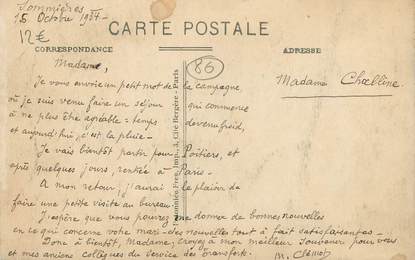 Sommières
15 Octobre 1937.
12€
CARTE POSTALE
86
CORRESPONDANCE
ADRESSE
Madame,
Je vous envoie un petit mot de la campagne,
où je suis venu faire un séjour qui commence
à ne plus être agréable: temps devenu froid,
et aujourd'hui, c'est la pluie.
Je vais bientôt partir pour Poitiers, et
après quelques jours, rentrée à Paris.
A mon retour, j'aurai le plaisir de
faire une petite visite au bureau
J'espère que vous pourrez me donner de bonnes nouvelles
en ce qui concerne votre mari - des nouvelles tout à fait satisfaisantes -
Donc à bientôt, Madame, croyez à mon meilleur souvenir pour vous
et mes anciens collègues du service des Transferts.
Madame Choelline
Phototypie Imp., 3, Cité Bergère - Paris